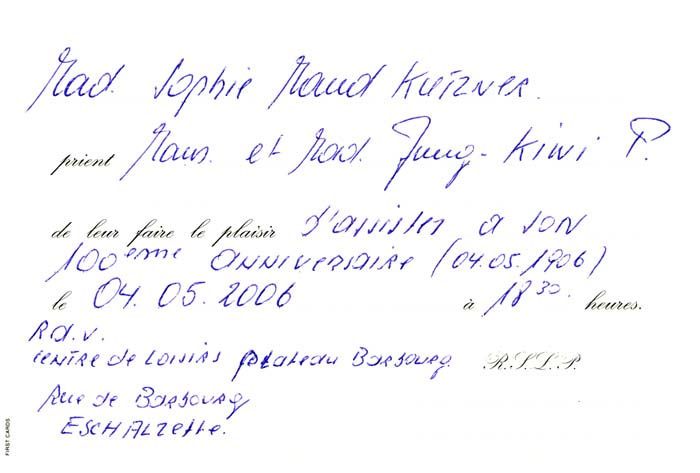 Mad. Sophie Maud Kutzner.
prient Mons. et Mad. Jung-Kiwi P.
de leur faire le plaisir d'assister a son
100ème anniversaire (04.05.1906)
le 04.05.2006 à 18 30. heures.
Rd.v.
centre de Loisirs plateau Barbourg. R.S.L.P.
Rue de Barbourg
ESCHALzette.
FIRST CARDS